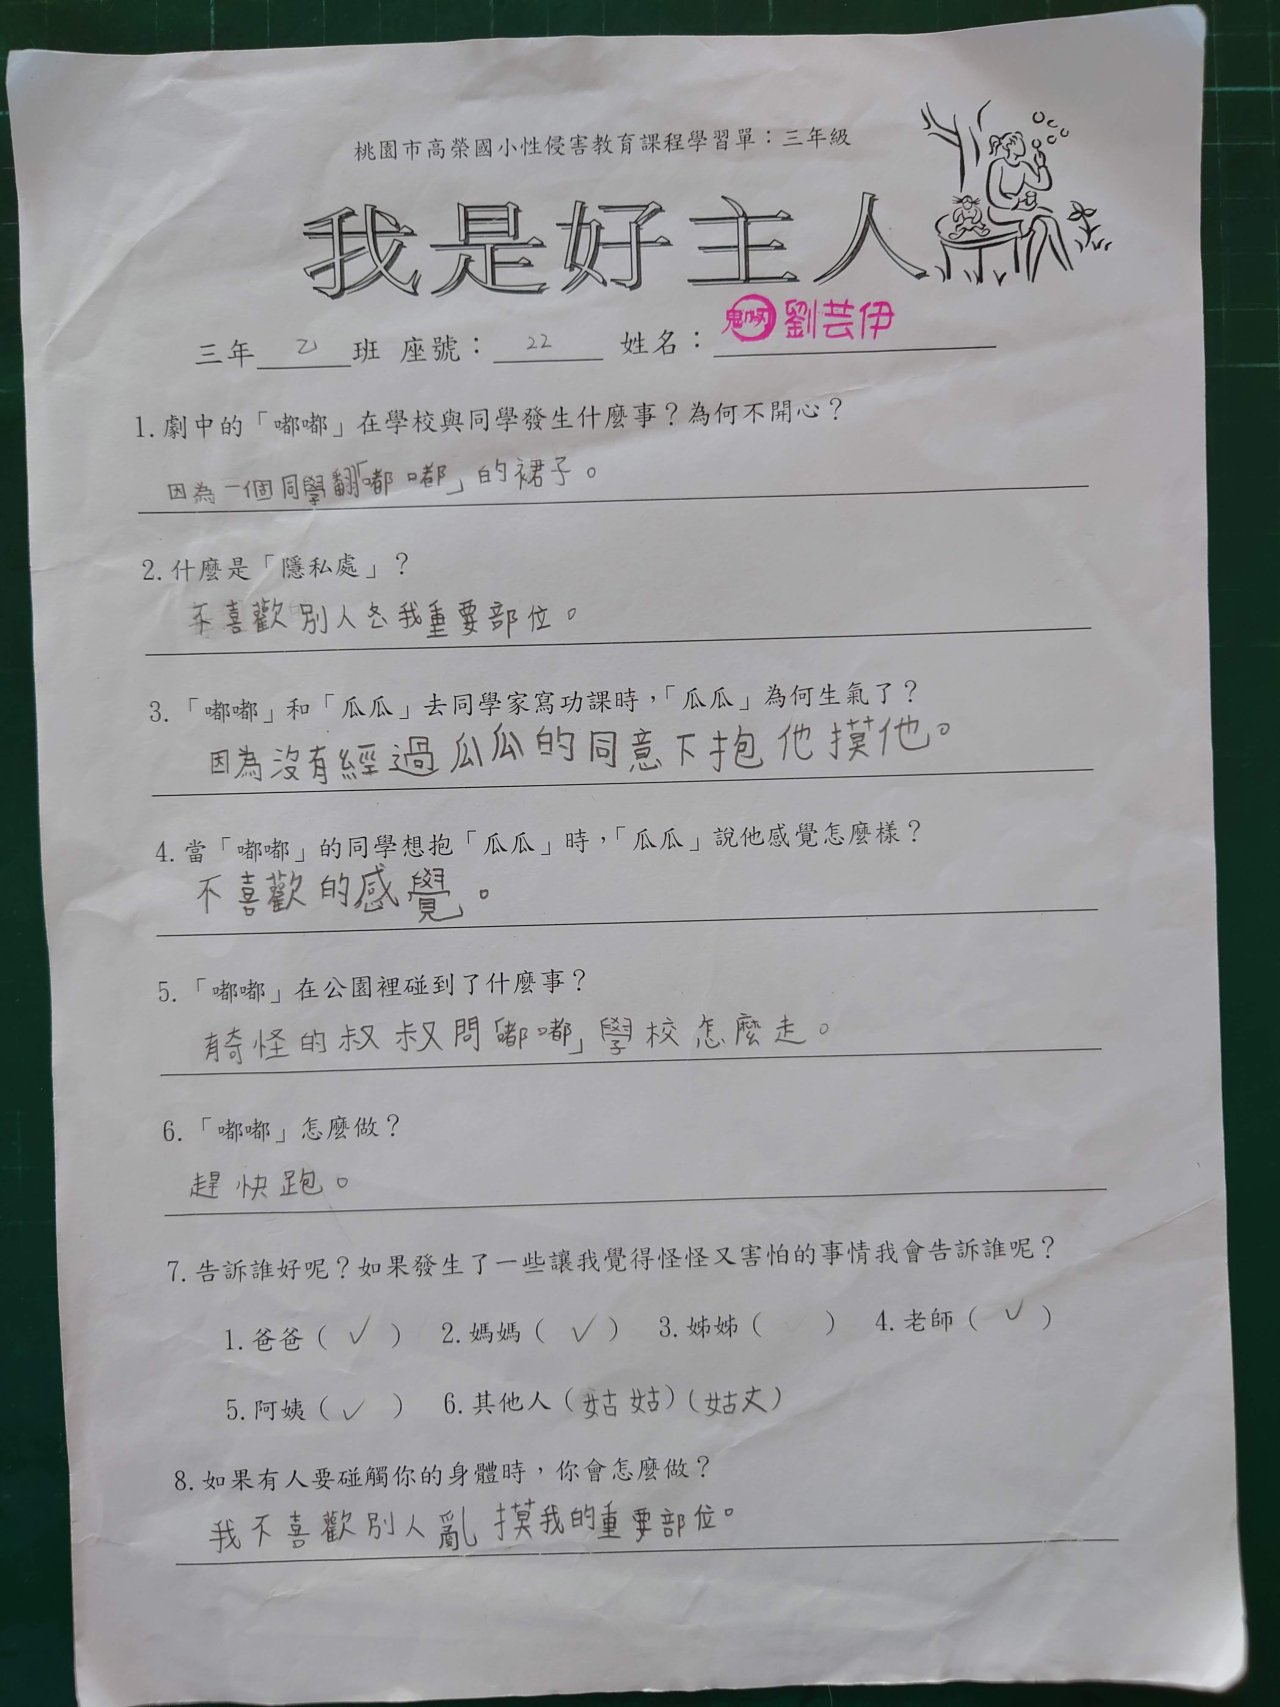 桃園市高榮國小性侵害教育課程學習單：三年級
我是好主人
三年 乙 班 座號： 22 姓名： 劉芸伊
1. 劇中的「嘟嘟」在學校與同學發生什麼事？為何不開心？
因為一個同學翻「嘟嘟」的裙子。
2. 什麼是「隱私處」？
不喜歡別人去我重要部位。
3. 「嘟嘟」和「瓜瓜」去同學家寫功課時，「瓜瓜」為何生氣了？
因為沒有經過瓜瓜的同意下抱他摸他。
4. 當「嘟嘟」的同學想抱「瓜瓜」時，「瓜瓜」說他感覺怎麼樣？
不喜歡的感覺。
5. 「嘟嘟」在公園裡碰到了什麼事？
有奇怪的叔叔問「嘟嘟」學校怎麼走。
6. 「嘟嘟」怎麼做？
趕快跑。
7. 告訴誰好呢？如果發生了一些讓我覺得怪怪又害怕的事情我會告訴誰呢？
1. 爸爸（ ✓ ） 2. 媽媽（ ✓ ） 3. 姊姊（ ） 4. 老師（ ✓ ）
5. 阿姨（ ✓ ） 6. 其他人（姑姑）（姑丈）
8. 如果有人要碰觸你的身體時，你會怎麼做？
我不喜歡別人亂摸我的重要部位。